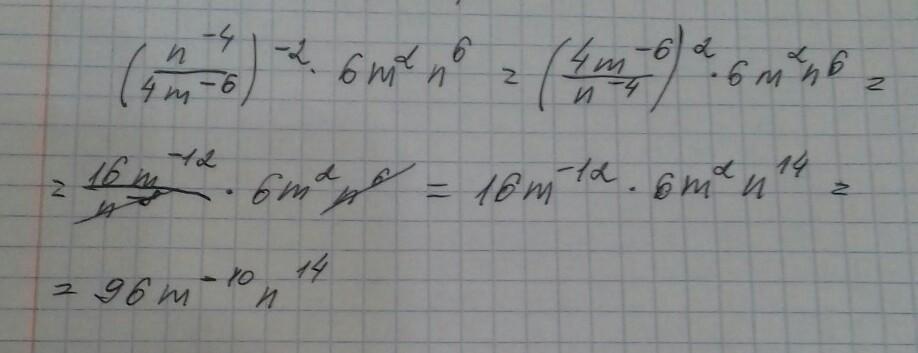 (n⁻⁴/4m⁻⁶)⁻² · 6m²n⁶ = (4m⁻⁶/n⁻⁴)² · 6m²n⁶ =
= 16m⁻¹²/n⁻⁸ · 6m²n⁶ = 16m⁻¹² · 6m²n¹⁴ =
= 96m⁻¹⁰n¹⁴